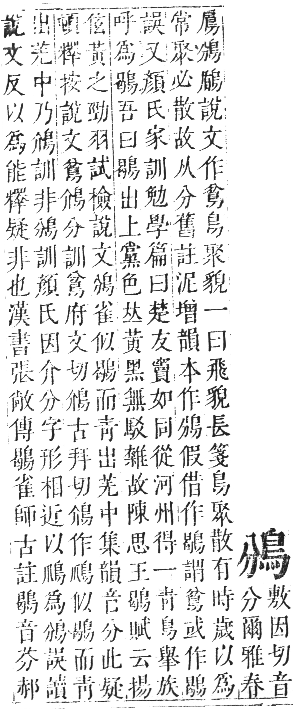 鳻敷因切音
分爾雅春
鳸鳻鶞說文作鳻鳥聚貌一曰飛貌長箋鳥聚散有時歲以爲
常聚必散故从分舊註泥增韻本作鳻假借作鶡謂鳻或作鶡
誤又顏氏家訓勉學篇曰楚友竇如同從河州得一青鳥舉族
呼爲鶡吾曰鶡出上黨色𠀤黃黑無駁雜故陳思王鶡賦云揚
𤣥黃之勁羽試檢說文鳻雀似鶡而青出羌中集韻音分此疑
頓釋按說文鳻䲸分訓鳻府文切䲸古拜切䲸作䲸似鶡而青
出羌中乃䲸訓非鳻訓顏氏因介分字形相近以䲸爲鳻誤讀
說文反以爲能釋疑非也漢書張敞傳鶡雀師古註鶡音芬郝